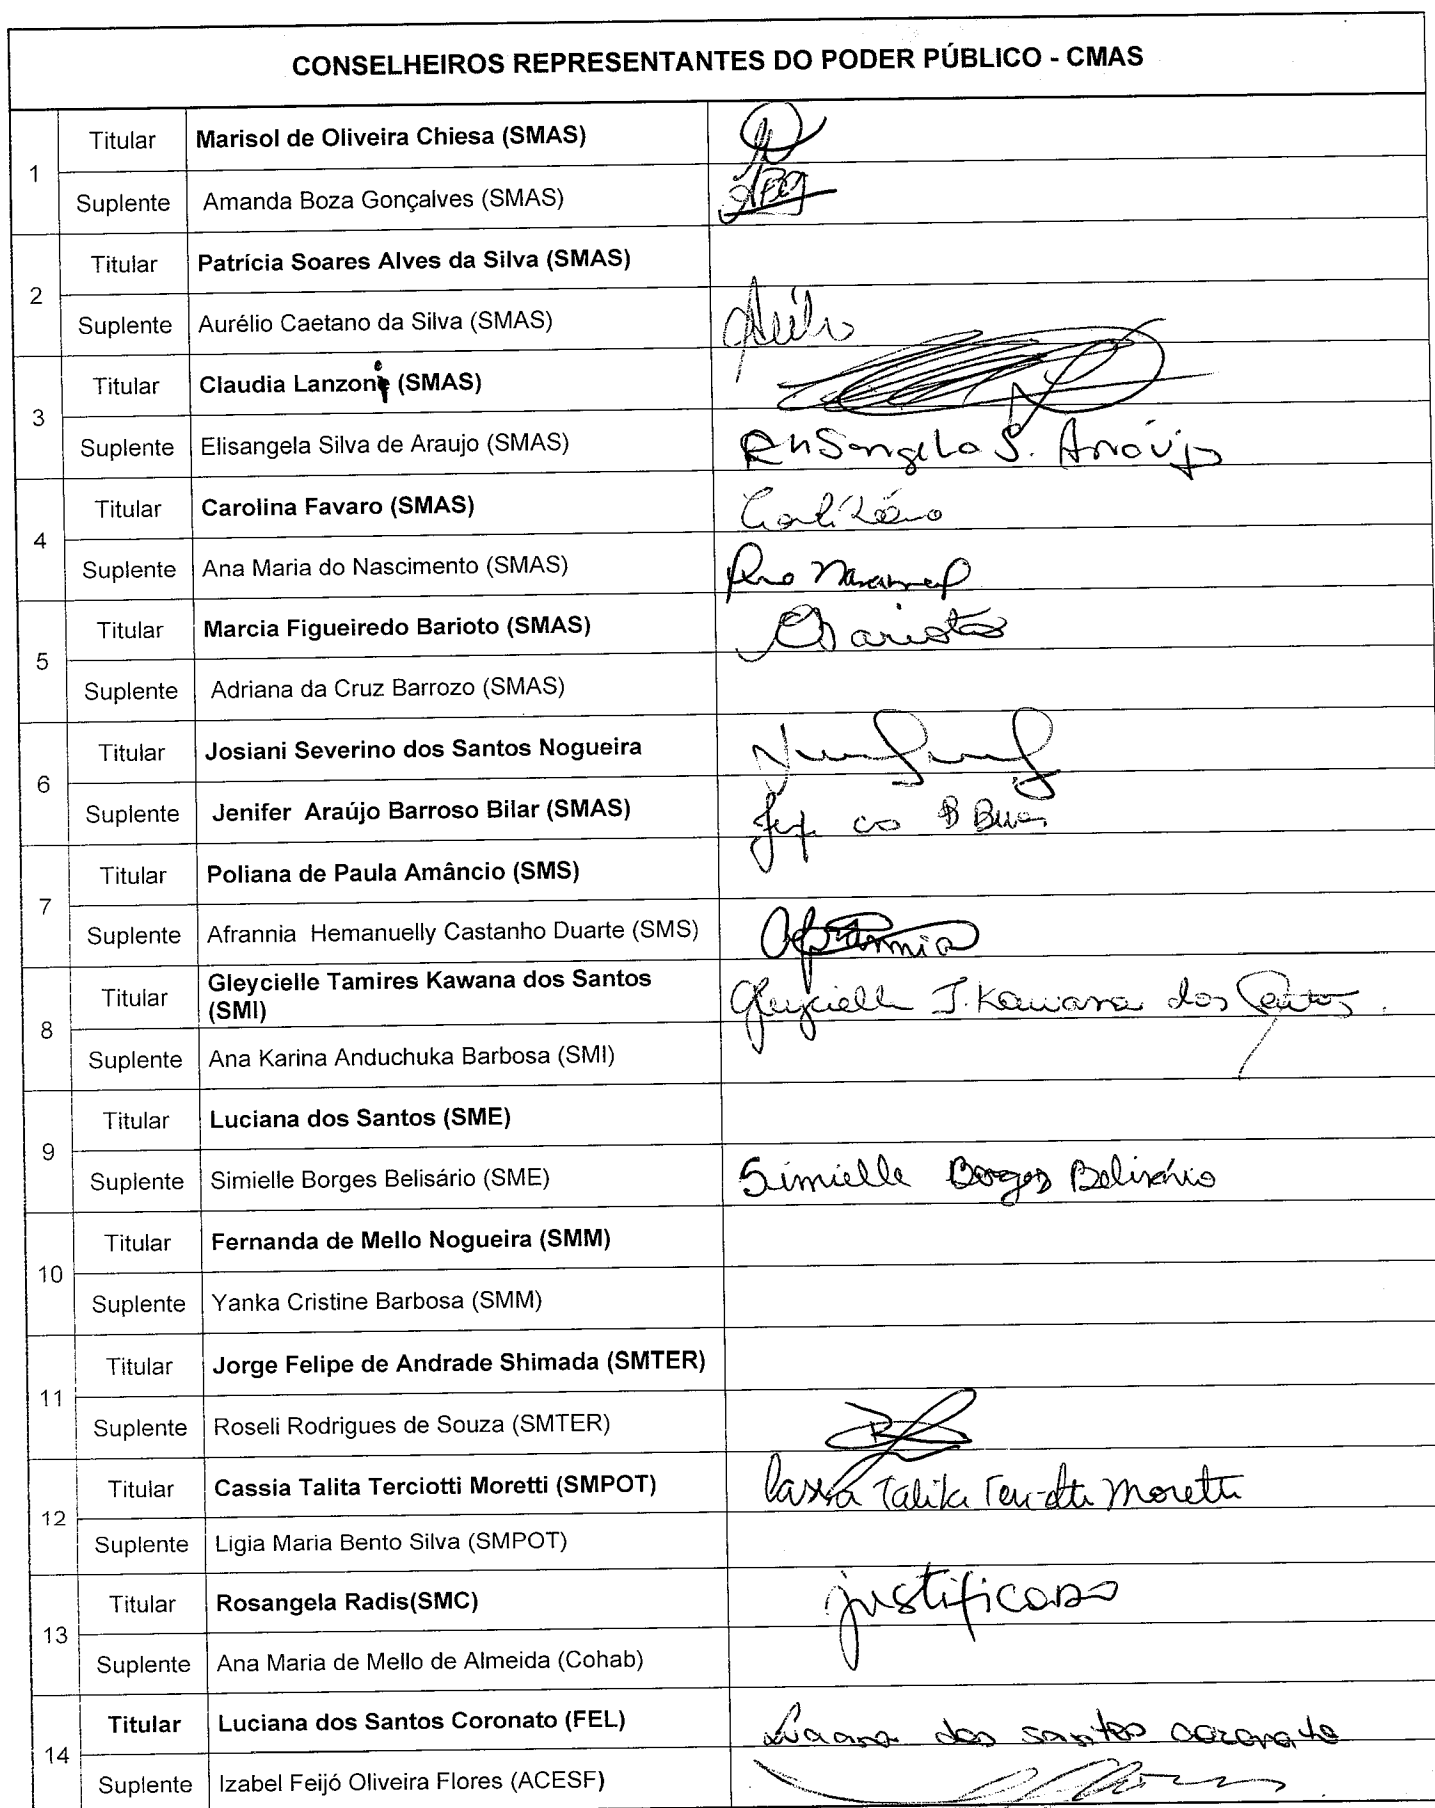 CONSELHEIROS REPRESENTANTES DO PODER PÚBLICO - CMAS
1
Titular Marisol de Oliveira Chiesa (SMAS)
Suplente Amanda Boza Gonçalves (SMAS)
2
Titular Patrícia Soares Alves da Silva (SMAS)
Suplente Aurélio Caetano da Silva (SMAS)
3
Titular Claudia Lanzoni (SMAS)
Suplente Elisangela Silva de Araujo (SMAS) Elisangela S. Araújo
4
Titular Carolina Favaro (SMAS)
Suplente Ana Maria do Nascimento (SMAS)
5
Titular Marcia Figueiredo Barioto (SMAS)
Suplente Adriana da Cruz Barrozo (SMAS)
6
Titular Josiani Severino dos Santos Nogueira
Suplente Jenifer Araújo Barroso Bilar (SMAS)
7
Titular Poliana de Paula Amâncio (SMS)
Suplente Afrannia Hemanuelly Castanho Duarte (SMS) Afrannia
8
Titular Gleycielle Tamires Kawana dos Santos
(SMI) Gleycielle T. Kawana dos Santos.
Suplente Ana Karina Anduchuka Barbosa (SMI)
9
Titular Luciana dos Santos (SME)
Suplente Simielle Borges Belisário (SME) Simielle Borges Belisário
10
Titular Fernanda de Mello Nogueira (SMM)
Suplente Yanka Cristine Barbosa (SMM)
11
Titular Jorge Felipe de Andrade Shimada (SMTER)
Suplente Roseli Rodrigues de Souza (SMTER)
12
Titular Cassia Talita Terciotti Moretti (SMPOT) Cassia Talita Terciotti Moretti
Suplente Ligia Maria Bento Silva (SMPOT)
13
Titular Rosangela Radis(SMC) justificado
Suplente Ana Maria de Mello de Almeida (Cohab)
14
Titular Luciana dos Santos Coronato (FEL) Luciana dos santos coronato
Suplente Izabel Feijó Oliveira Flores (ACESF)